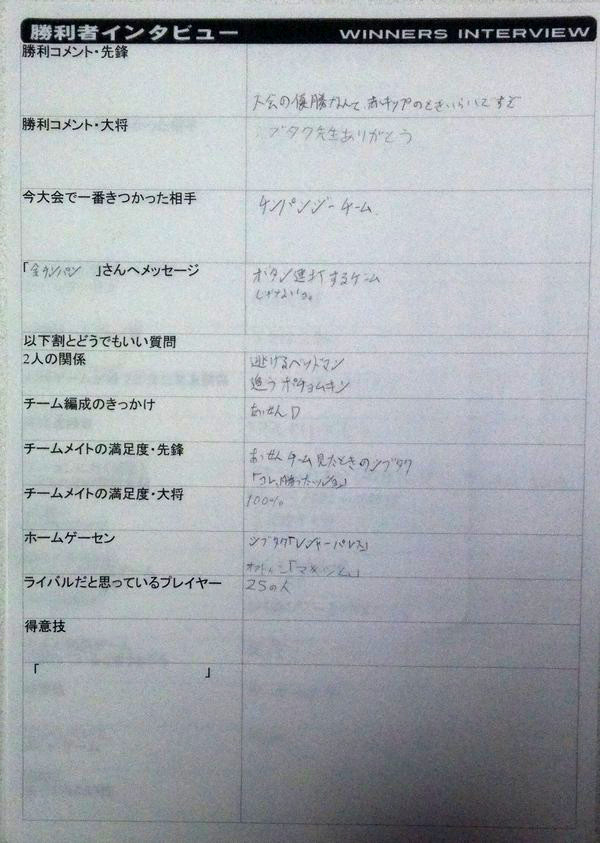 勝利者インタビュー WINNERS INTERVIEW
勝利コメント・先鋒
大会の優勝なんて、赤チップのときいらいです
勝利コメント・大将
ブタク先生ありがとう
今大会で一番きつかった相手
チンパンジーチーム
「全チンパン 」さんへメッセージ
ボタン連打するゲーム
じゃないよ。
以下割とどうでもいい質問
2人の関係
逃げるベッドマン
追うポチョムキン
チーム編成のきっかけ
おっせんD
チームメイトの満足度・先鋒
おっせんチーム見たときのシブタク
「コレ、勝ったッショ」
チームメイトの満足度・大将
100%
ホームゲーセン
シブタク「レジャーパレス」
「マキシム」
ライバルだと思っているプレイヤー
25の人
得意技
「 」